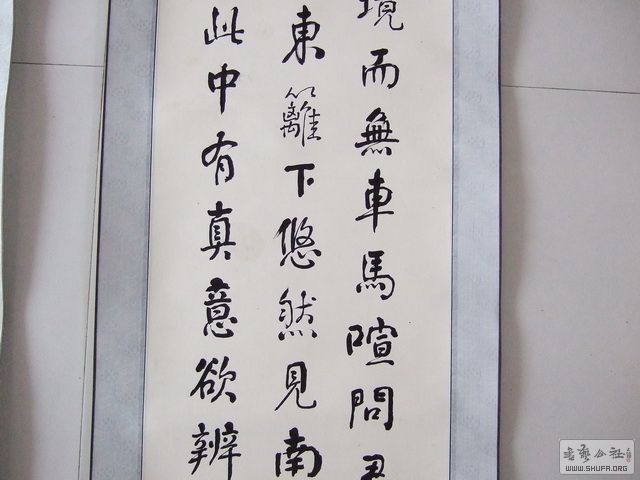 境而無車馬喧問君
東籬下悠然見南
此中有真意欲辨
書藝公社
WWW.SHUFA.ORG